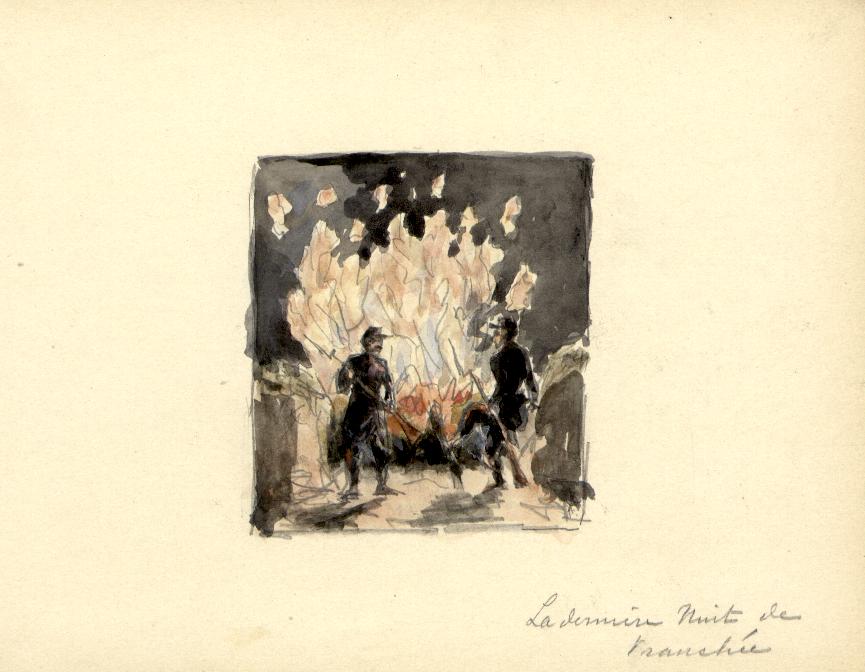 La dernière Nuit de
Tranchée